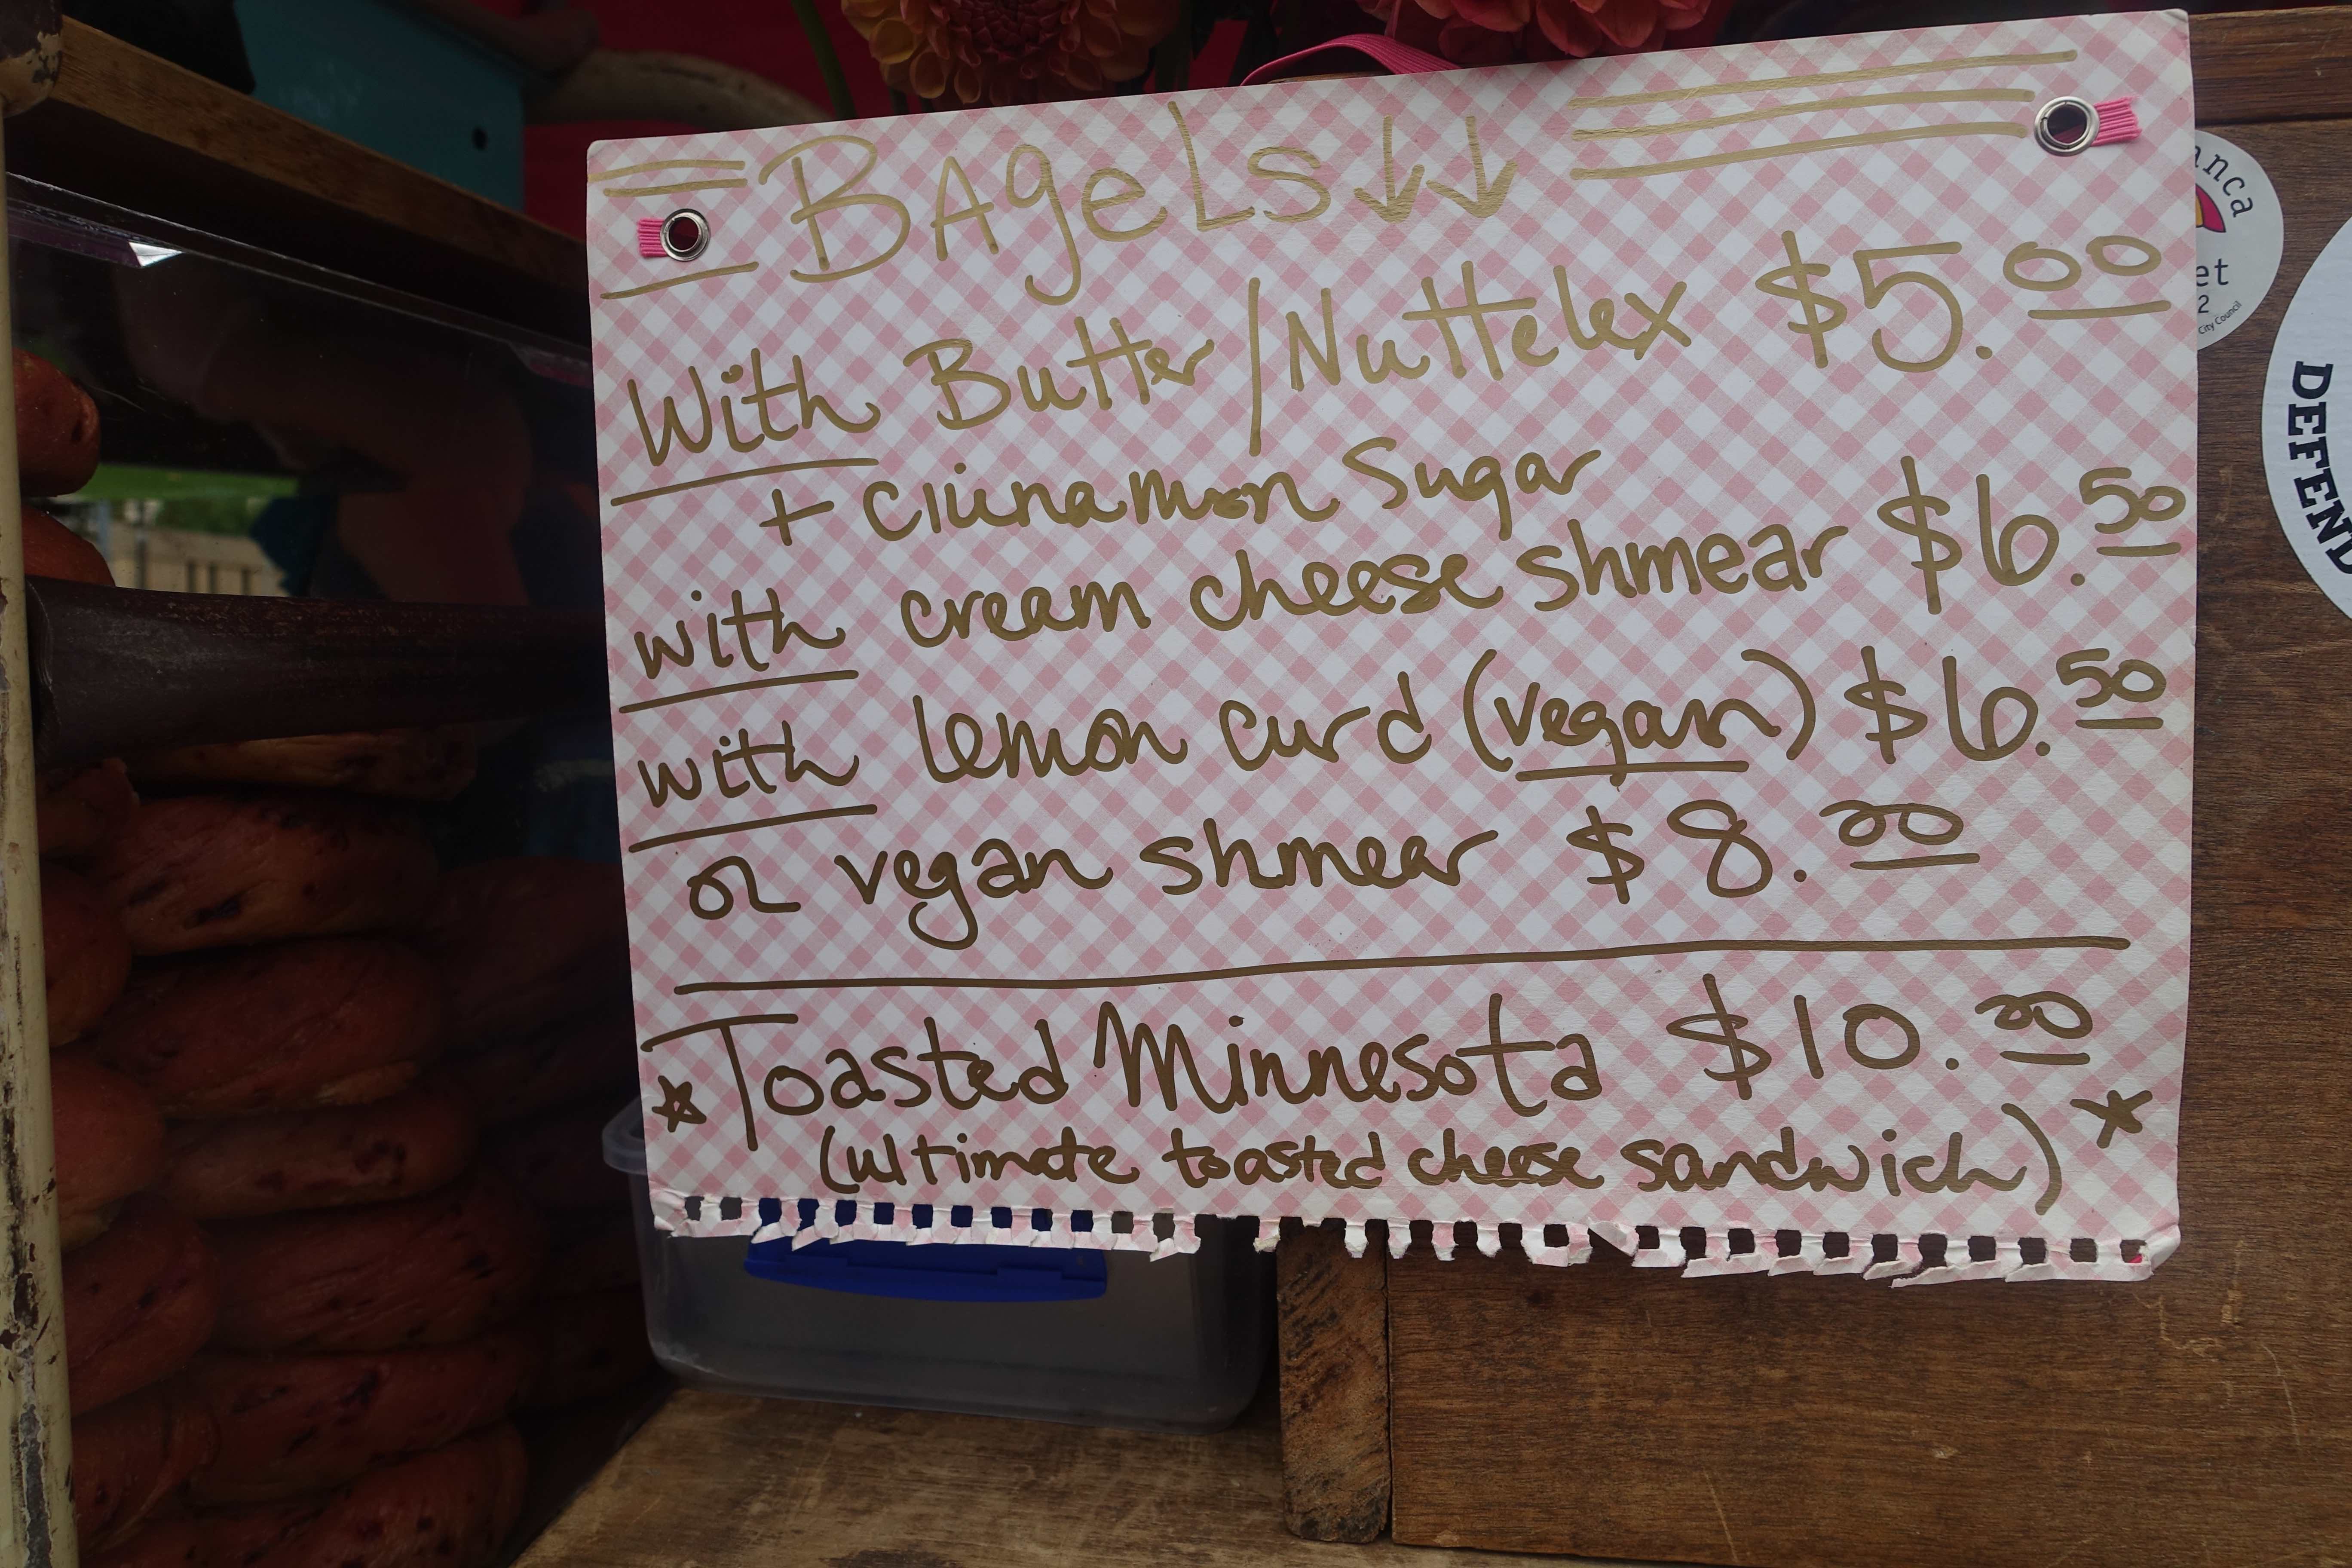 BAgeLS ↓↓
With Butter/Nuttelex $5.00
+ Ciinnamon Sugar
with cream cheese shmear $6.50
with lemon curd (vegan) $6.50
or vegan shmear $8.00
Toasted Minnesota $10.00
(ultimate toasted cheese sandwich)
anca
et
2
City Council
DEFEND